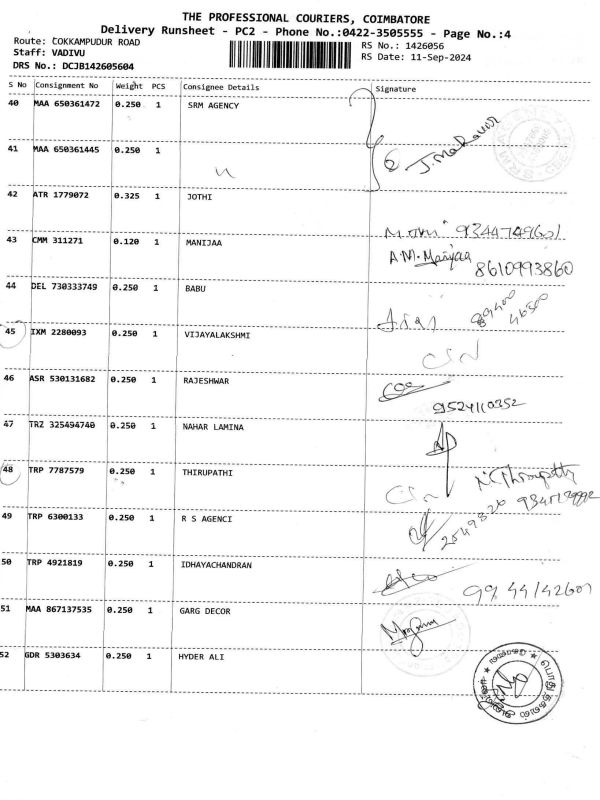 THE PROFESSIONAL COURIERS, COIMBATORE
Delivery Runsheet - PC2 - Phone No.:0422-3505555 - Page No.:4
Route: COKKAMPUDUR ROAD
Staff: VADIVU
DRS No.: DCJB142605604
RS No.: 1426056
RS Date: 11-Sep-2024
S No Consignment No Weight PCS Consignee Details Signature
40 MAA 650361472 0.250 1 SRM AGENCY
41 MAA 650361445 0.250 1
42 ATR 1779072 0.325 1 JOTHI
43 CMM 311271 0.120 1 MANIJAA
8610993860
44 DEL 730333749 0.250 1 BABU
45 IXM 2280093 0.250 1 VIJAYALAKSHMI
46 ASR 530131682 0.250 1 RAJESHWAR
9524110352
47 TRZ 325494740 0.250 1 NAHAR LAMINA
48 TRP 7787579 0.250 1 THIRUPATHI
49 TRP 6300133 0.250 1 R S AGENCI
50 TRP 4921819 0.250 1 IDHAYACHANDRAN
51 MAA 867137535 0.250 1 GARG DECOR
52 GDR 5303634 0.250 1 HYDER ALI